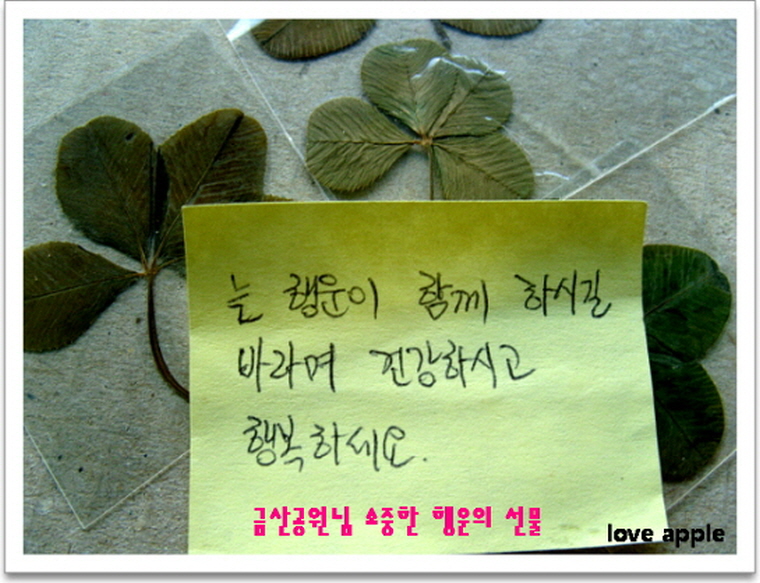 늘 행운이 함께 하시길
바라며 건강하시고
행복하세요.
금산공원님 소중한 행운의 선물
love apple